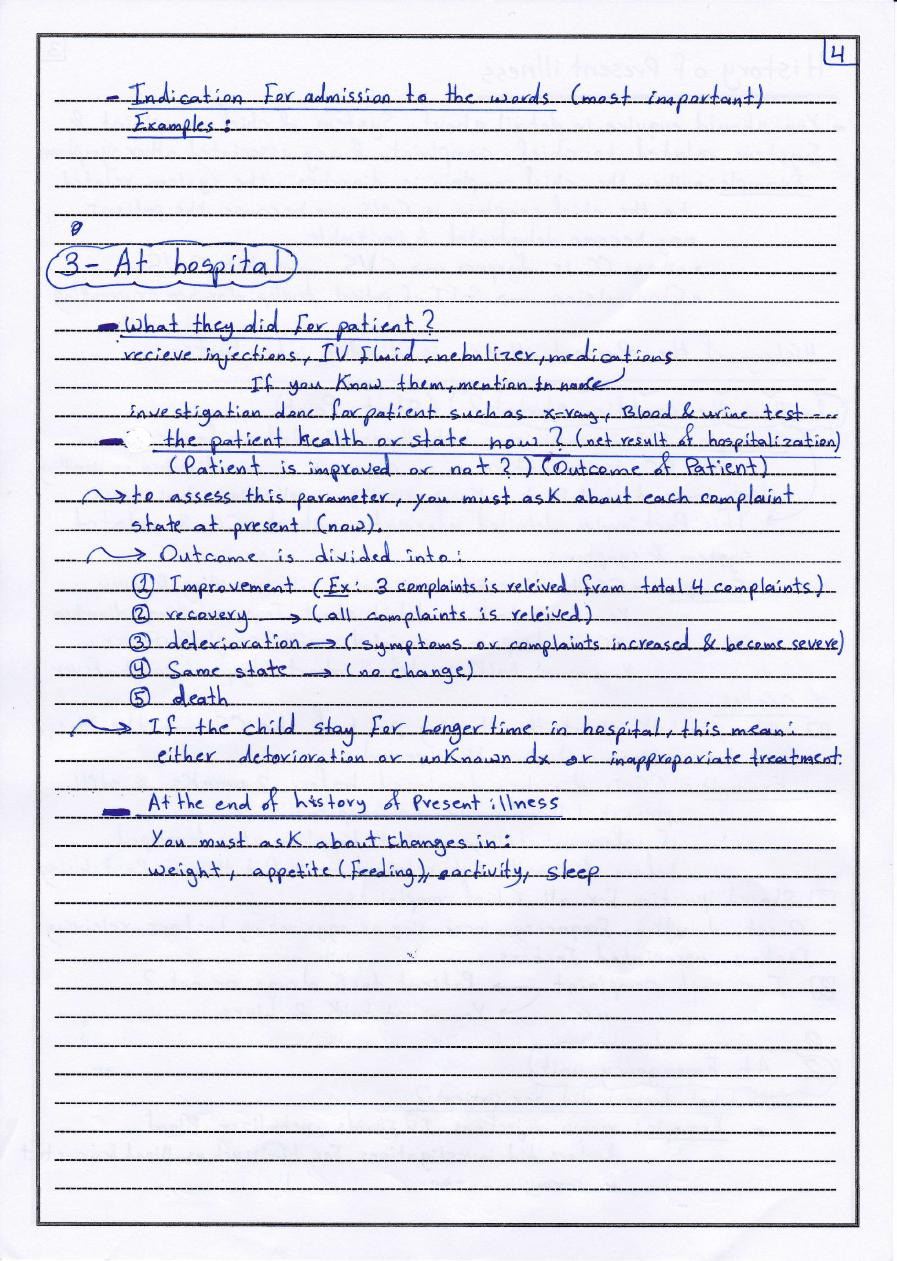 4
- Indication For admission to the words (most important)
Examples:
3- At hospital
- What they did For patient?
recieve injections, IV Fluid, nebulizer, medications
If you Know them, mention name
investigation done for patient such as x-ray, Blood & urine test ---
- the patient health or state now? (net result of hospitalization)
(Patient is improved or not?) (Outcome of Patient)
→ to assess this parameter, you must ask about each complaint
state at present (now).
→ Outcome is divided into:
① Improvement (Ex: 3 complaints is releived from total 4 complaints)
② recovery → (all complaints is releived)
③ deterioration → (symptoms or complaints increased & become severe)
④ Same state → (no change)
⑤ death
→ If the child stay For Longer time in hospital, this mean:
either detorioration or unKnown dx or inapproporiate treatment.
- At the end of history of Present illness
You must ask about changes in:
weight, appetite (Feeding), activity, sleep